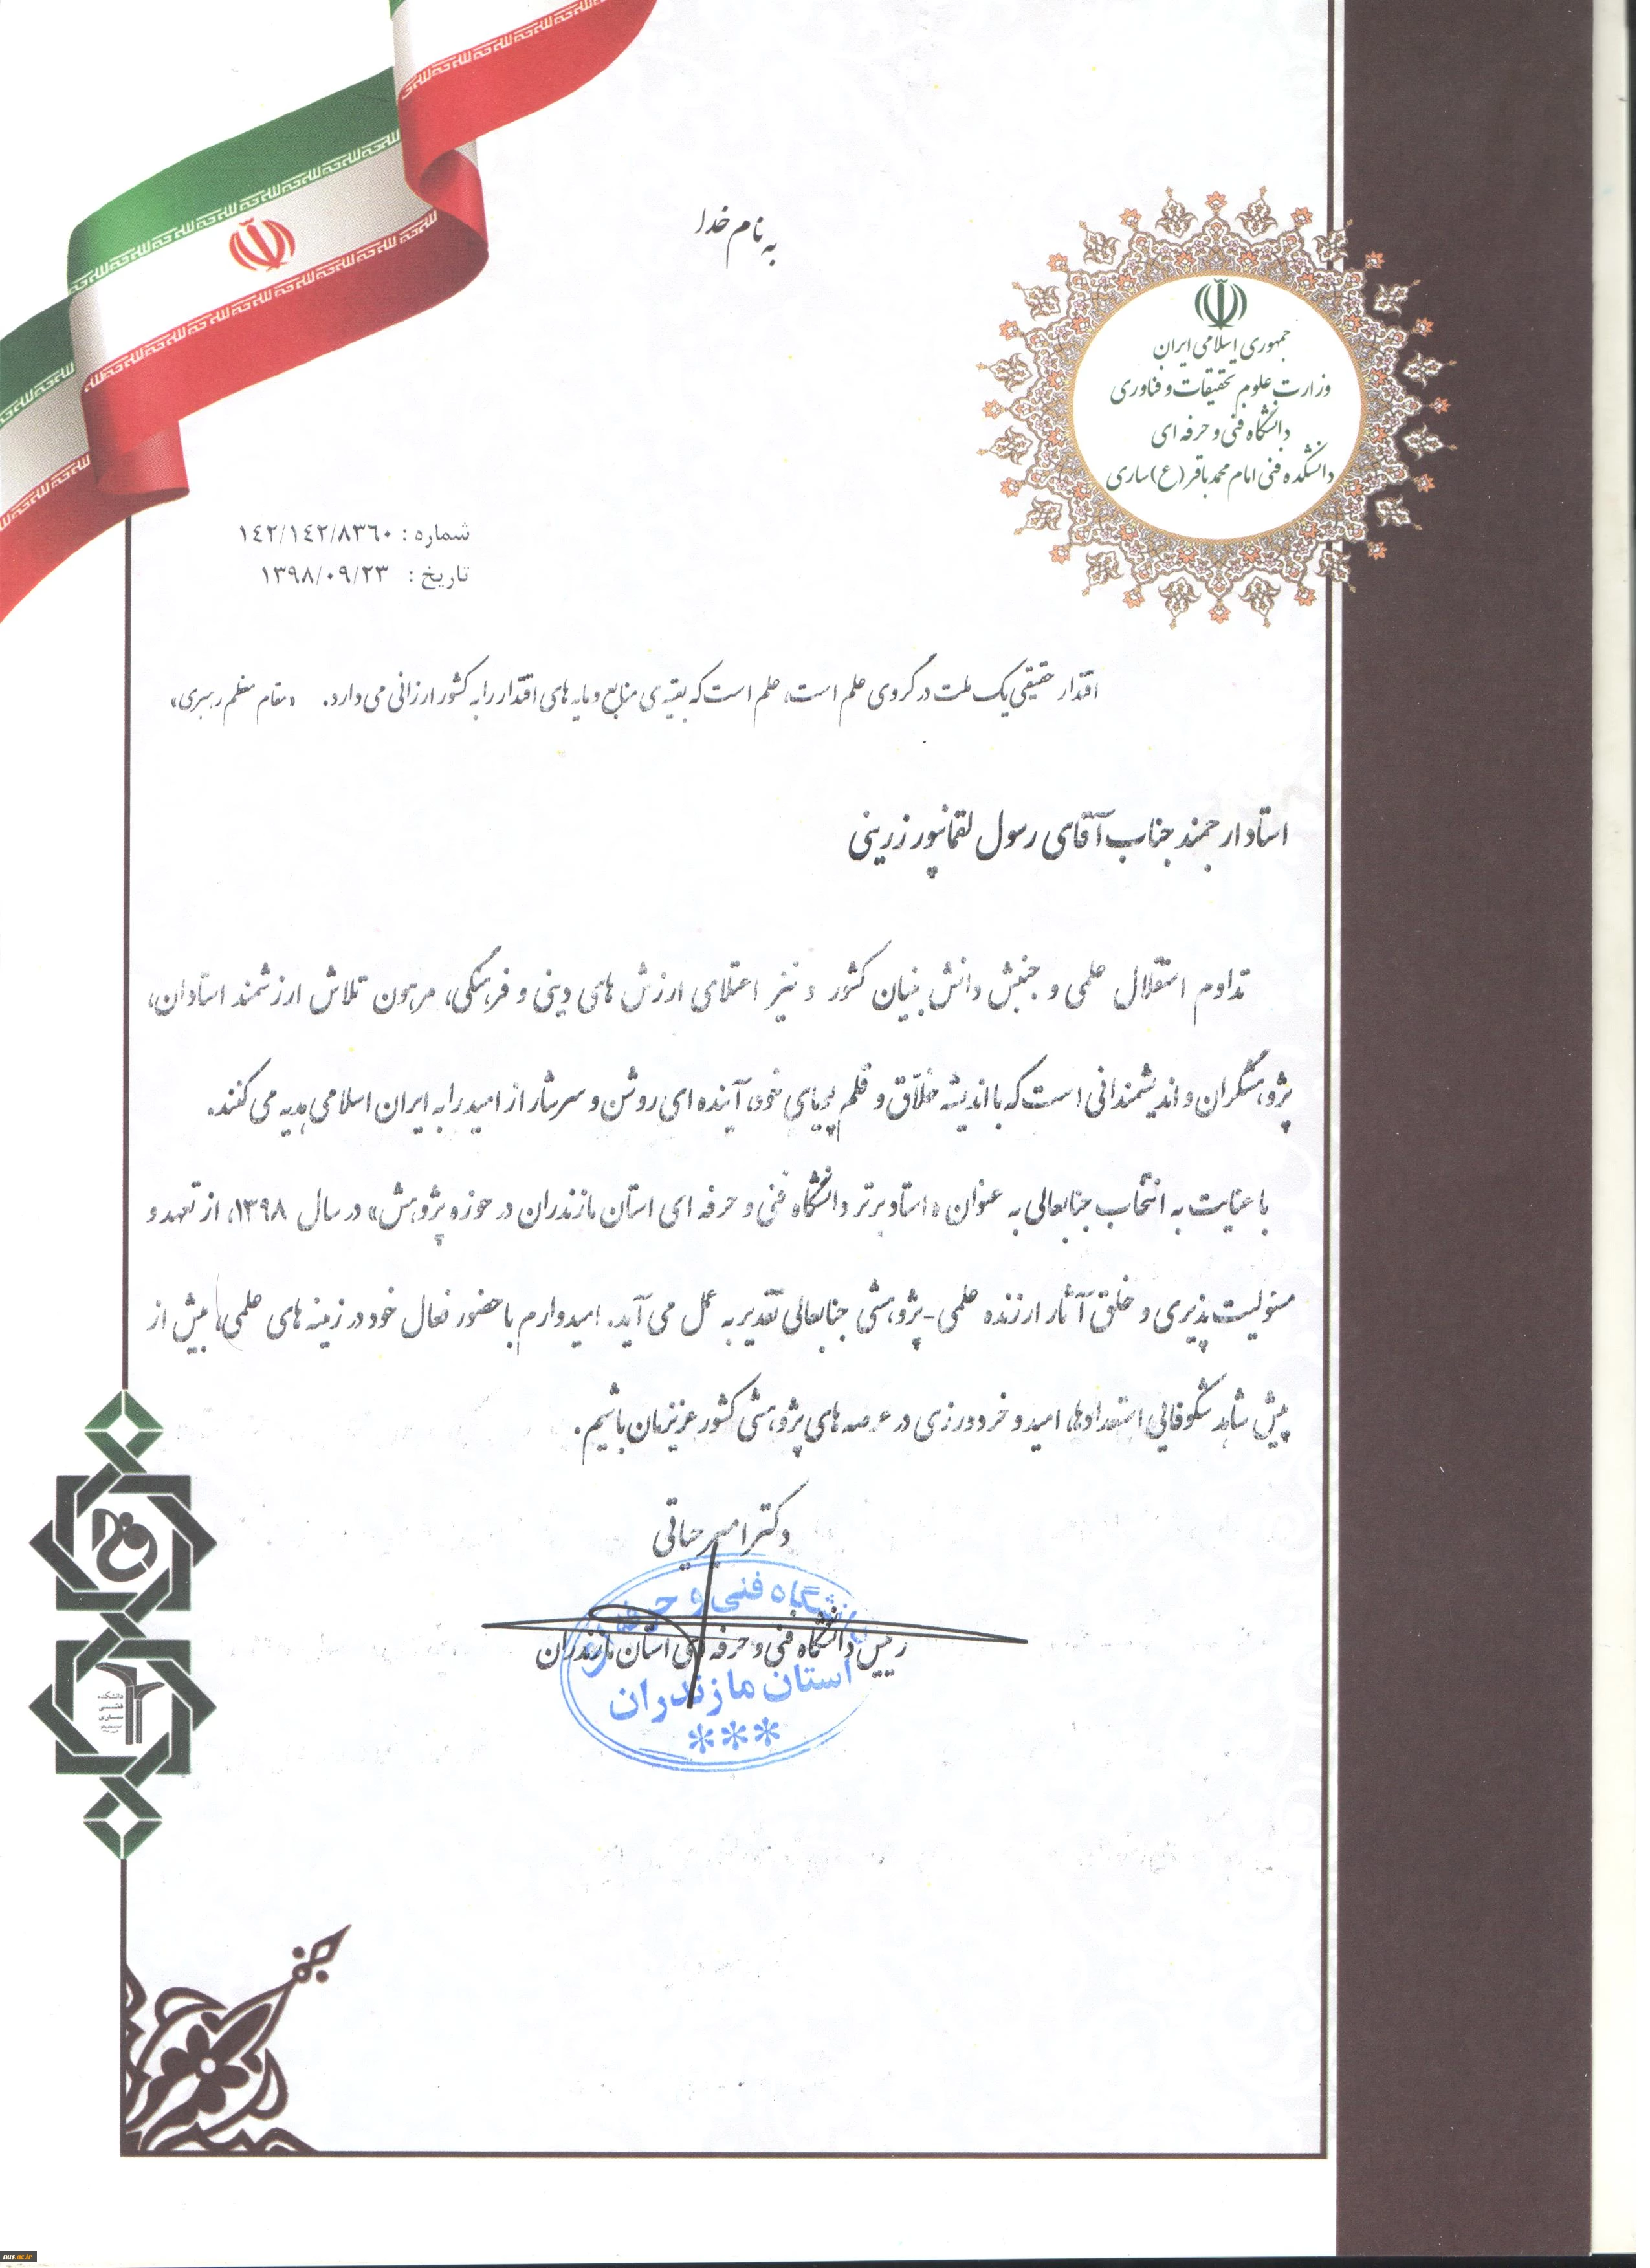 به نام خدا
جمهوری اسلامی ایران
وزارت علوم تحقیقات و فناوری
دانشگاه فنی و حرفه ای
دانشکده فنی امام محمد باقر (ع) ساری
شماره : ١٤٢/١٤٢/٨٣٦٠
تاریخ : ١٣٩٨/٠٩/٢٣
اقتدار حقیقی یک ملت در گروی علم است، علم است که بقیه ی منابع و مایه های اقتدار را به کشور ارزانی می دارد. «مقام معظم رهبری»
استاد ارجمند جناب آقای رسول لقمانپور زرینی
تداوم استقلال علمی و جنبش دانش بنیان کشور و نیز اعتلای ارزش های دینی و فرهنگی، مرهون تلاش ارزشمند استادان،
پژوهشگران و اندیشمندانی است که با اندیشه خلّاق و قلم پویای خود، آینده ای روشن و سرشار از امید را به ایران اسلامی هدیه می کنند.
با عنایت به انتخاب جنابعالی به عنوان «استاد برتر دانشگاه فنی و حرفه ای استان مازندران در حوزه پژوهش» در سال ۱۳۹۸، از تعهد و
مسئولیت پذیری و خلق آثار ارزنده علمی-پژوهشی جنابعالی تقدیر به عمل می آید. امیدوارم با حضور فعال خود در زمینه های علمی، بیش از
پیش شاهد شکوفایی استعدادها، امید و خردورزی در عرصه های پژوهشی کشور عزیزمان باشیم.
دکتر امیر حیاتی
دانشگاه فنی و حرفه ای
رییس دانشگاه فنی و حرفه ای استان مازندران
استان مازندران
***
دانشکده
فنی
ساری
nus.ac.ir